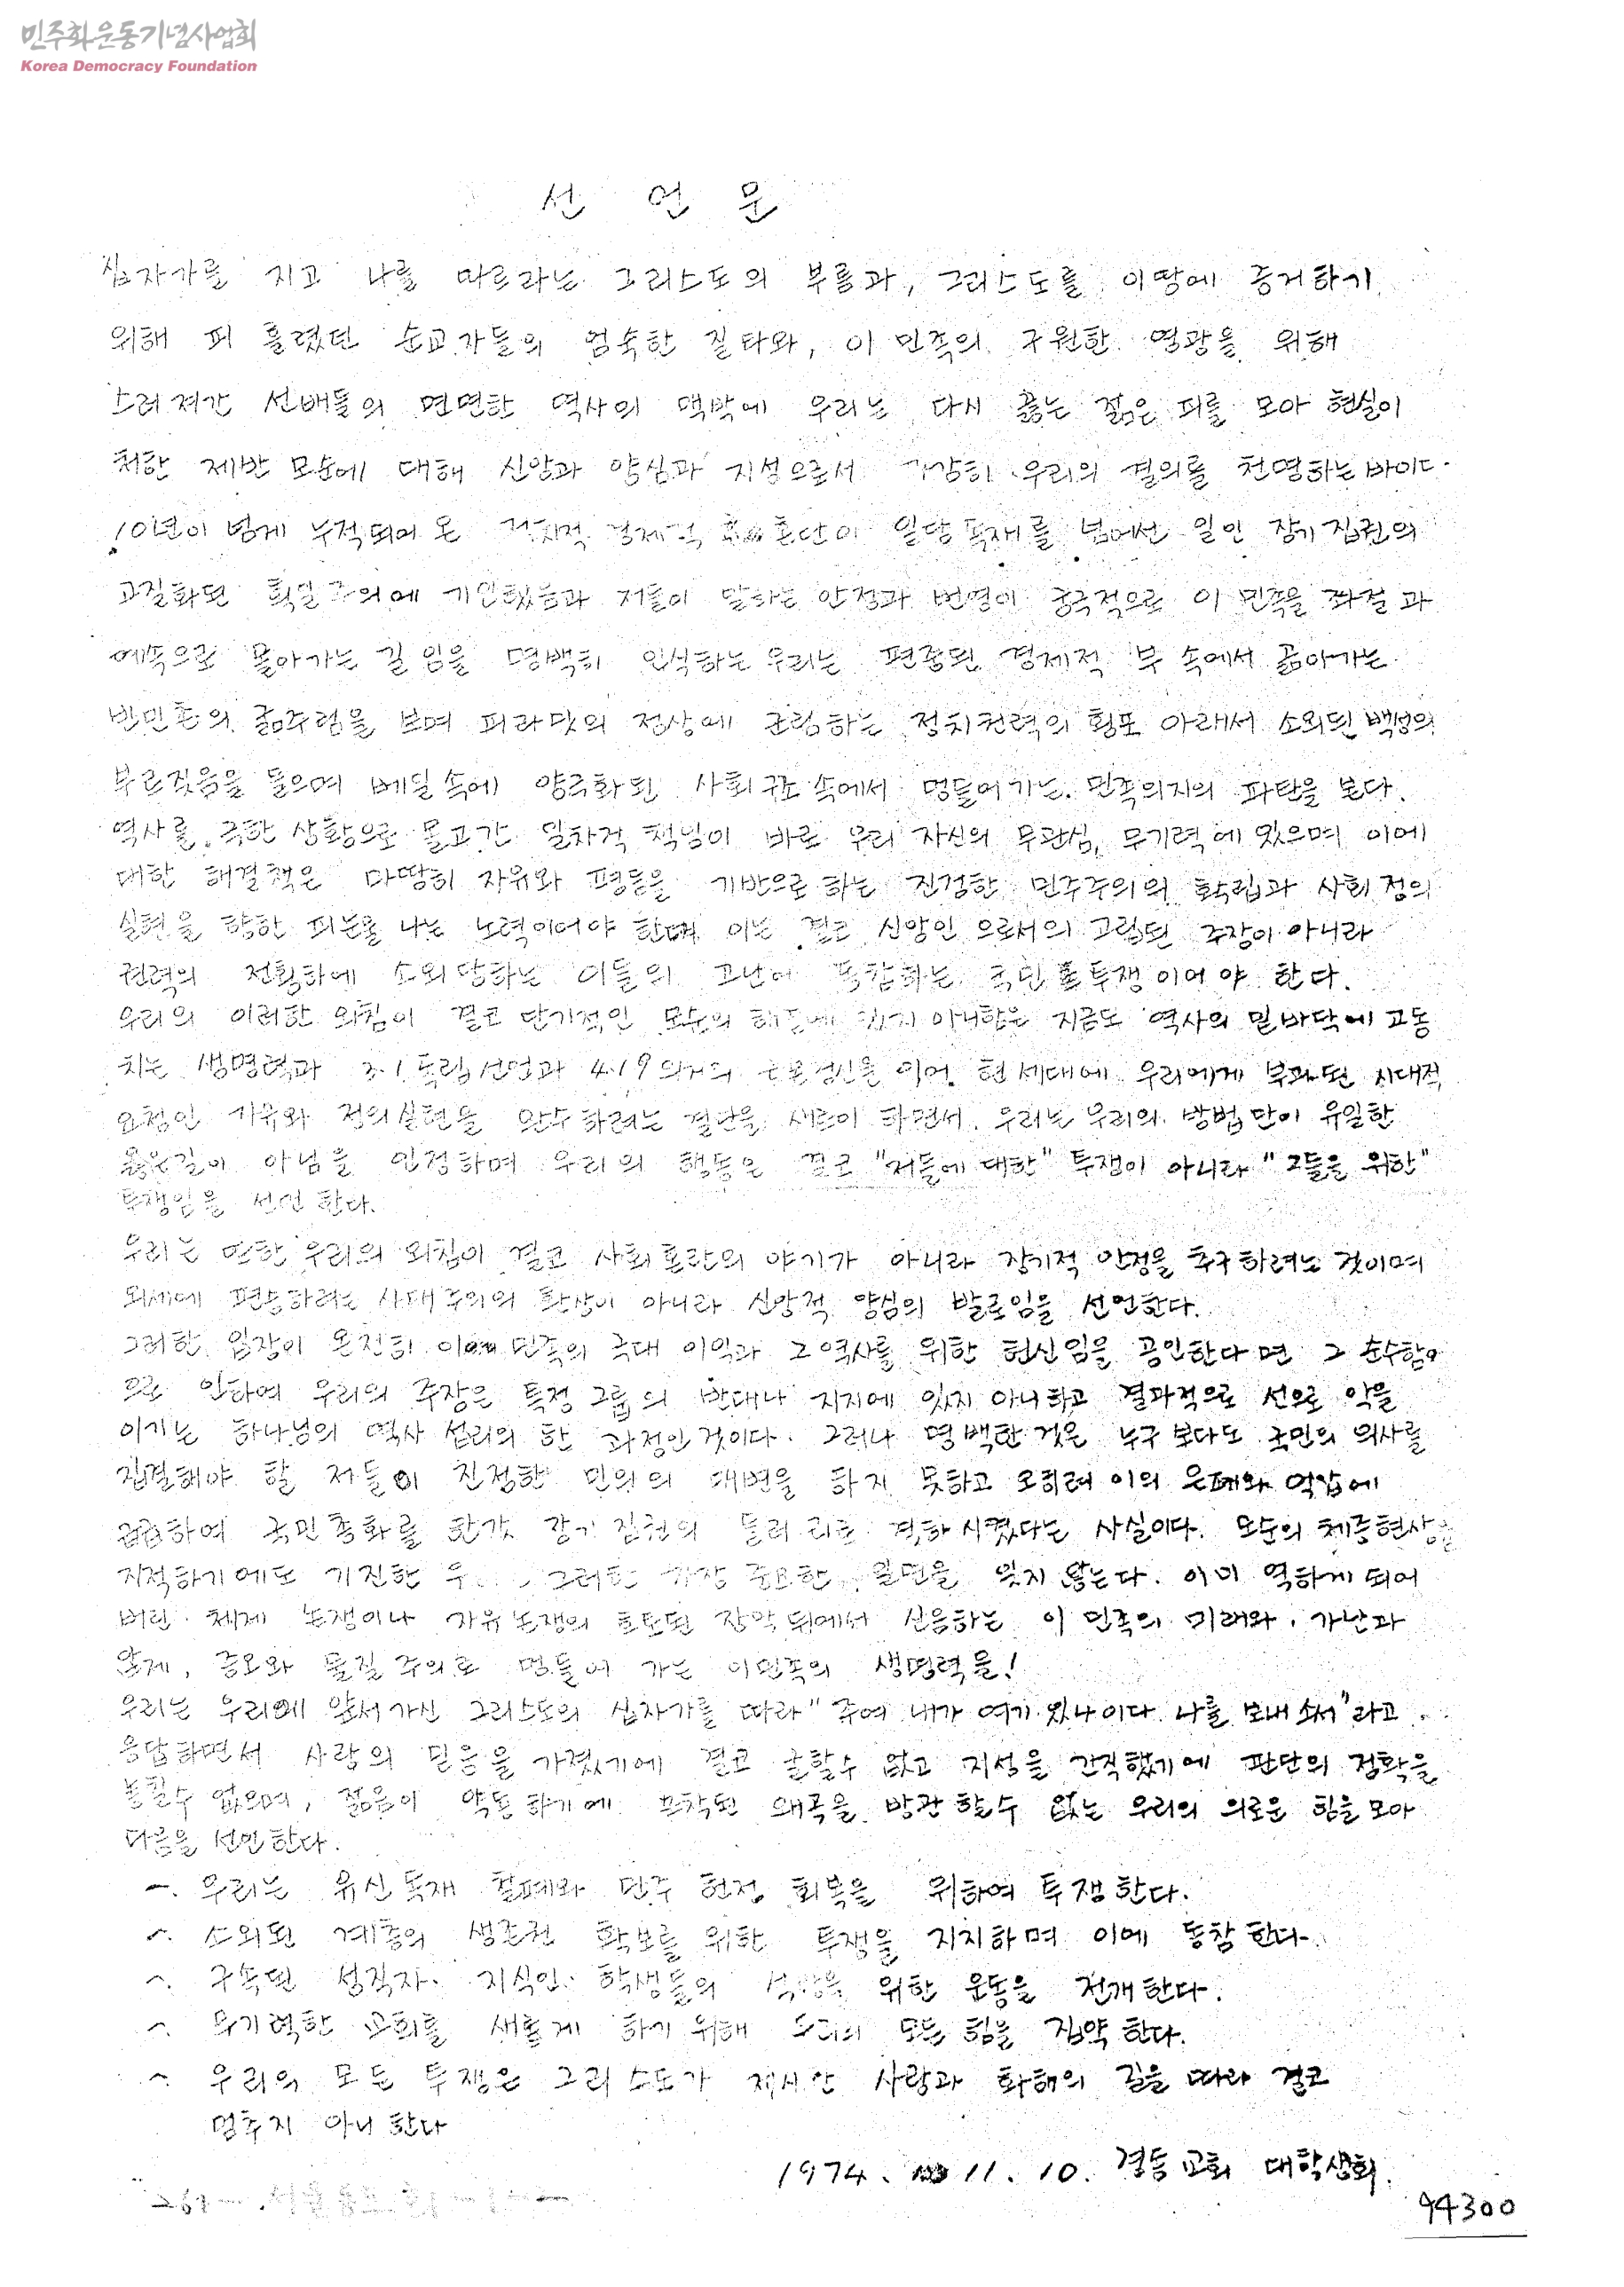 민주화운동기념사업회
Korea Democracy Foundation
선 언 문
십자가를 지고 나를 따르라는 그리스도의 부름과, 그리스도를 이땅에 증거하기
위해 피 흘렸던 순교자들의 엄숙한 질타와, 이 민족의 구원한 영광을 위해
스러져간 선배들의 면면한 역사의 맥박에 우리는 다시 끓는 젊은 피를 모아 현실이
처한 제반 모순에 대해 신앙과 양심과 지성으로서 우리의 결의를 천명하는바이다.
10년이 넘게 누적되어 온 정치적 경제적 혼단이 일당독재를 넘어선 일인 장기집권의
고질화된 획일주의에 기인했음과 저들이 말하는 안정과 번영이 궁극적으로 이 민족을 좌절과
예속으로 몰아가는 길 임을 명백히 인식하는 우리는 편중된 경제적 부 속에서 곪아가는
빈민촌의 굶주림을 보며 피라밋의 정상에 군림하는 정치권력의 횡포 아래서 소외된 백성의
부르짖음을 들으며 베일속에 양극화된 사회구조 속에서 멍들어가는 민족의지의 파탄을 본다.
역사를 극한 상황으로 몰고간 일차적 책님이 바로 우리 자신의 무관심, 무기력에 있으며 이에
대한 해결책은 마땅히 자유와 평등을 기반으로 하는 진정한 민주주의의 확립과 사회정의
실현을 향한 피눈물 나는 노력이어야 한며 이는 결코 신앙인 으로서의 고립된 주장이 아니라
권력의 전횡하에 소외당하는 이들의 고난에 동참하는 국민 투쟁이어야 한다.
우리의 이러한 외침이 결코 단기적인 모순의 해결에 있지 아니함은 지금도 역사의 밑바닥에 고동
치는 생명력과 3.1 독립선언과 4.19 의거의 근본정신을 이어 현세대에 우리에게 부과된 시대적
요청인 자유와 정의실현을 완수하려는 결단을 새로이 하면서. 우리는 우리의 방법만이 유일한
옳은길이 아님을 인정하며 우리의 행동은 결코 "저들에 대한" 투쟁이 아니라 "그들을 위한"
투쟁임을 선언 한다.
우리는 또한 우리의 외침이 결코 사회혼란의 야기가 아니라 장기적 안정을 추구하려는 것이며
외세에 편승하려는 사대주의의 환상이 아니라 신앙적 양심의 발로임을 선언한다.
그러한 입장이 온전히 이 민족의 극대 이익과 그 역사를 위한 헌신임을 공인한다면 그 순수함
으로 인하여 우리의 주장은 특정 그룹의 반대나 지지에 있지 아니하고 결과적으로 선으로 악을
이기는 하나님의 역사 섭리의 한 과정인 것이다. 그러나 명백한 것은 누구보다도 국민의 의사를
집결해야 할 저들이 진정한 민의의 대변을 하지 못하고 오히려 이의 은폐와 억압에
급급하여 국민총화를 한갓 장기집권의 들러리로 격하시켰다는 사실이다. 모순의 체증현상을
지적하기에도 기진한 우 그러한 가장 중요한 일면을 잊지 않는다. 이미 역하게 되어
버린 체제 논쟁이나 자유논쟁의 호도된 장막뒤에서 신음하는 이 민족의 미래와, 가난과
압제, 증오와 물질주의로 멍들어 가는 이민족의 생명력을!
우리는 우리에 앞서가신 그리스도의 십자가를 따라 "주여 내가 여기 있나이다 나를 보내소서"라고
응답하면서 사랑의 믿음을 가졌기에 결코 굴할수 없고 지성을 간직했기에 판단의 정확을
놓칠수 없으며, 젊음이 약동하기에 부착된 왜곡을 방관할수 없는 우리의 의로운 힘을 모아
다음을 선언한다.
一. 우리는 유신독재 철폐와 민주 헌정 회복을 위하여 투쟁한다.
一. 소외된 계층의 생존권 확보를 위한 투쟁을 지지하며 이에 동참한다.
一. 구속된 성직자. 지식인. 학생들의 석방을 위한 운동을 전개한다.
一. 무기력한 교회를 새롭게 하기위해 우리의 모든 힘을 집약한다.
一. 우리의 모든 투쟁은 그리스도가 제시한 사랑과 화해의 길을 따라 결코
멈추지 아니한다
1974. 11. 10. 경동교회 대학생회.
94300